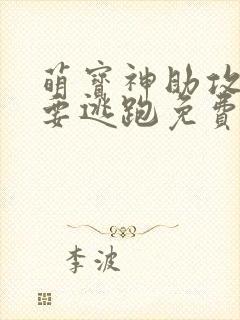 萌寳神助攻
要逃跑免費
李波